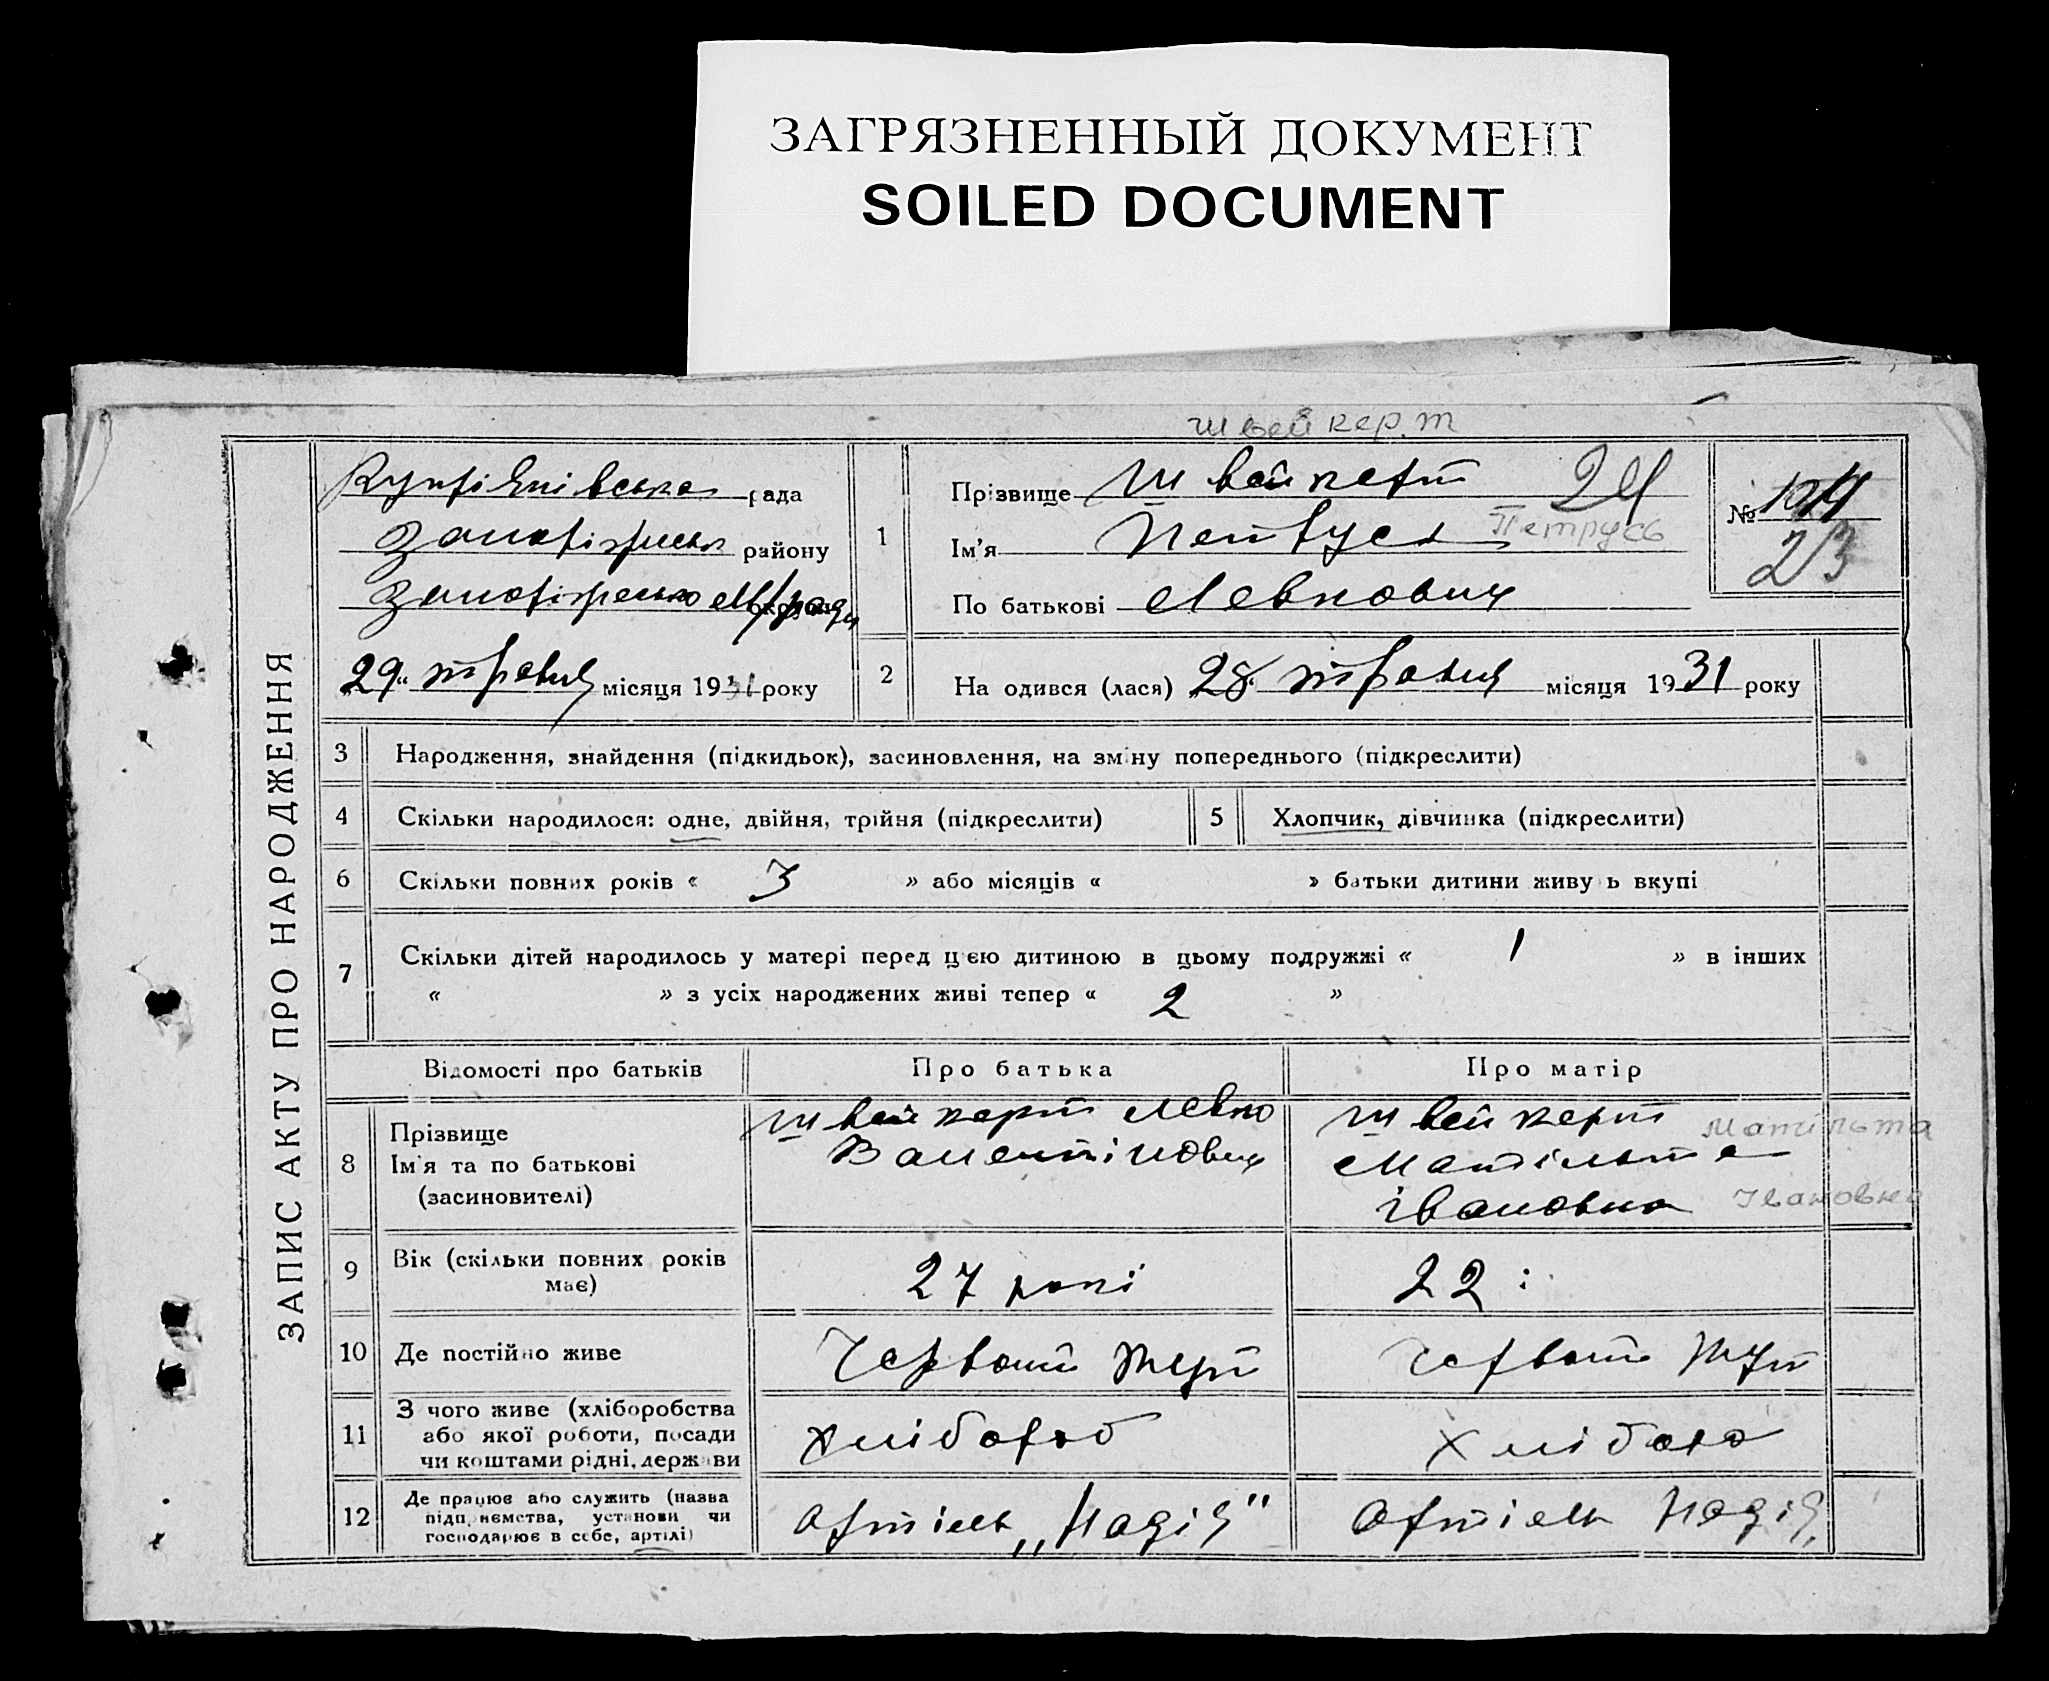 ЗАГРЯЗНЕННЫЙ ДОКУМЕНТ
SOILED DOCUMENT
Швейкерт
ЗАПИС АКТУ ПРО НАРОДЖЕННЯ
рада
району
29 травня місяця 1931 року
1
Прізвище Швейкерт 24
Ім'я Петрусь Петрусь
По батькові Левкович
№
23
2
На одився (лася) 28 травня місяця 1931 року
3 Народження, знайдення (підкидьок), засиновлення, на зміну попереднього (підкреслити)
4 Скільки народилося: одне, двійня, трійня (підкреслити)
5 Хлопчик, дівчинка (підкреслити)
6 Скільки повних років « 3 » або місяців « » батьки дитини живуь вкупі
7 Скільки дітей народилось у матері перед цією дитиною в цьому подружжі « 1 » в інших
« » з усіх народжених живі тепер « 2 »
Відомості про батьків Про батька Про матір
8 Прізвище
Ім'я та по батькові
(засиновителі)
Швейкерт Левко
Валентінович
Швейкерт Матільта
Матільта
Івановна Івановна
9 Вік (скільки повних років
має)
27 рокі
22 :
10 Де постійно живе
11 З чого живе (хліборобства
або якої роботи, посади
чи коштами рідні, держави
Хлібороб
12 Де працює або служить (назва
підприємства, установи чи
господарює в себе, артілі)
Артіль „Надія"
Артіль Надія